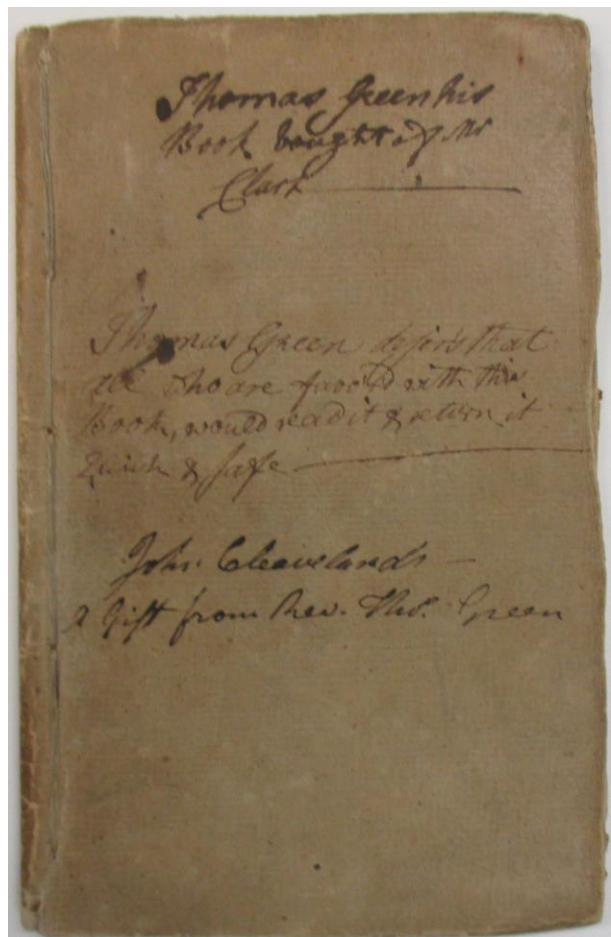 Thomas Green his
Book bought of Mr
Clark
Thomas Green desir's that
all who are favor'd with this
Book, would read it & return it
Quick & safe
John Cleavelands
A Gift from Rev. Tho.s Green